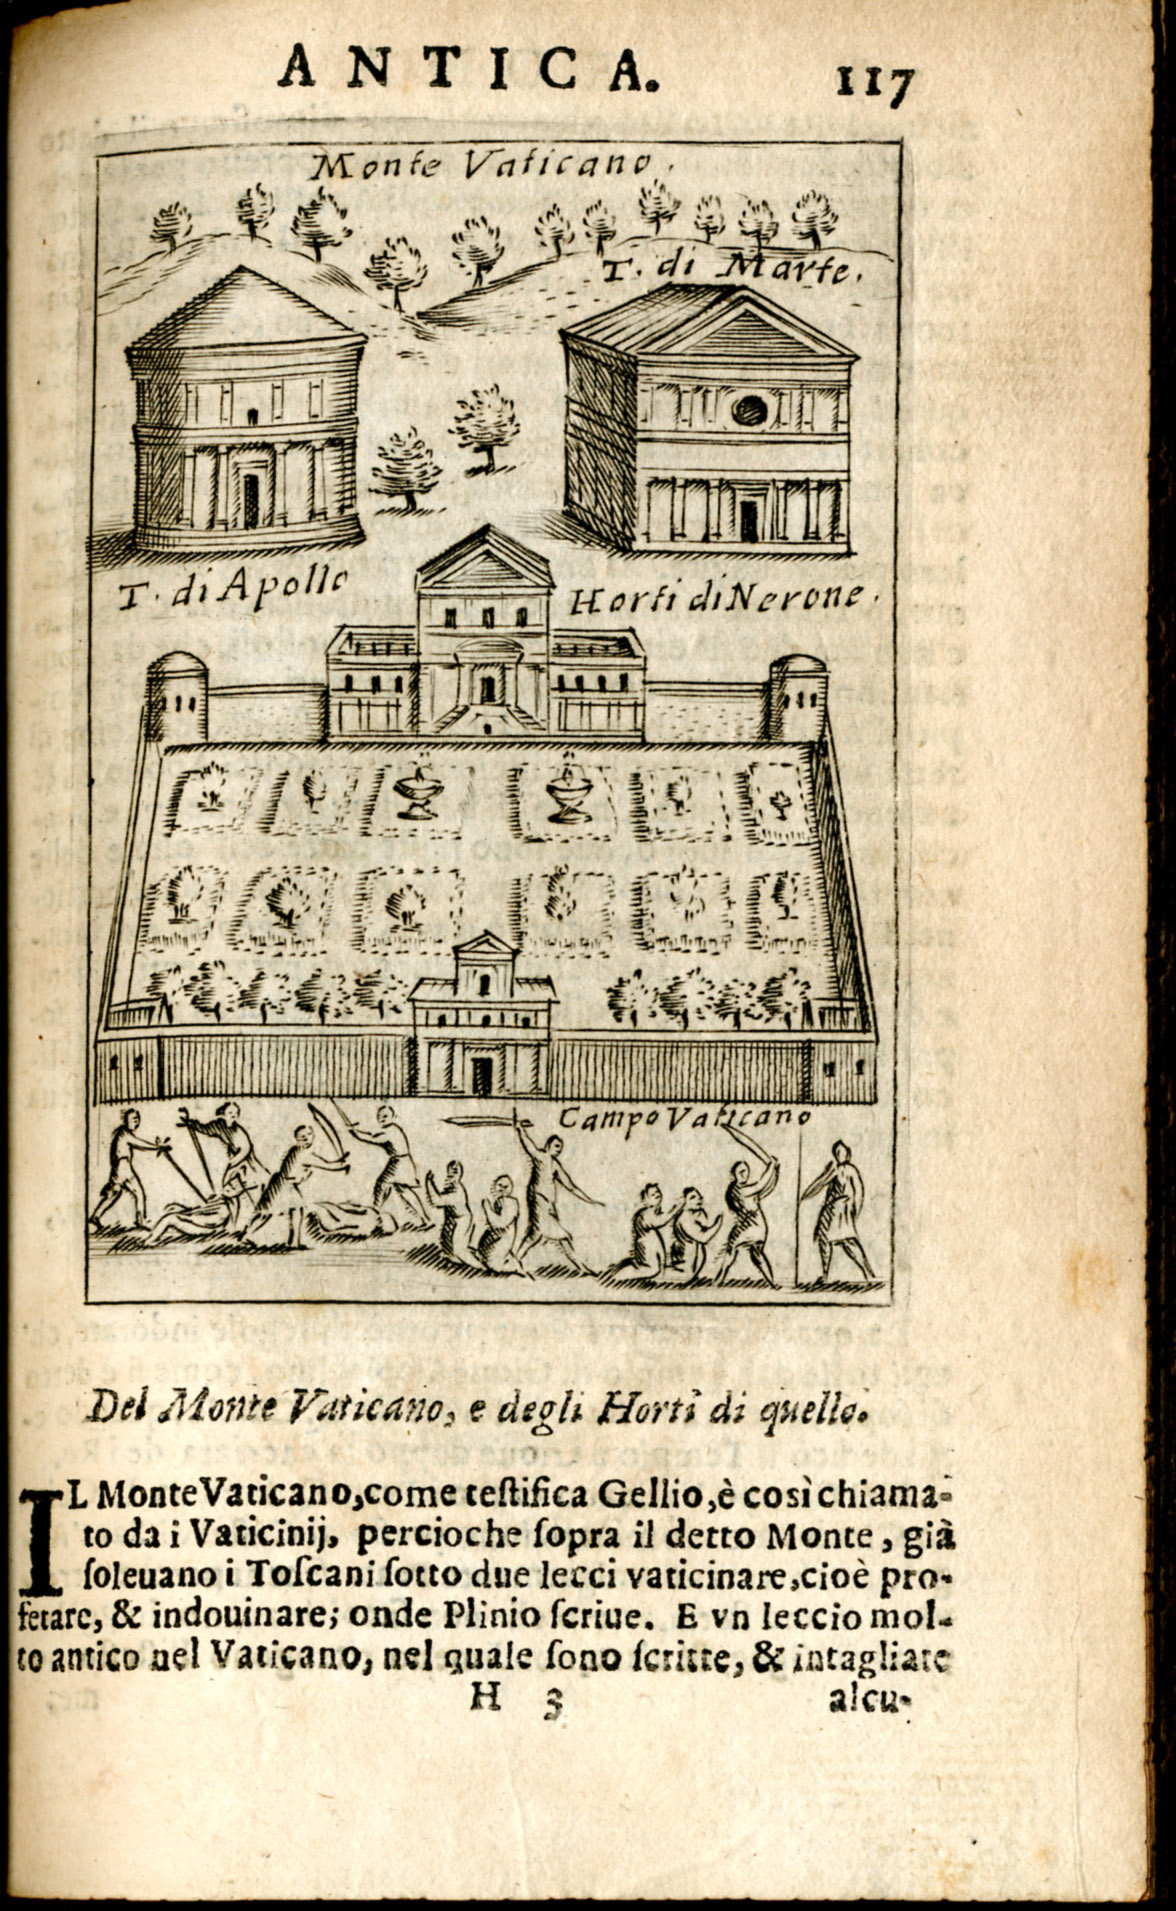 ANTICA.
117
Monte Vaticano.
T. di Marte.
T. di Apollo
Horti di Nerone.
Campo Vaticano
Del Monte Vaticano, e degli Horti di quello.
IL Monte Vaticano, come teſtifica Gellio, è così chiama-
to da i Vaticinij, percioche ſopra il detto Monte, già
ſoleuano i Toſcani ſotto due lecci vaticinare, cioè pro-
fetare, & indouinare; onde Plinio ſcriue. E vn leccio mol-
to antico nel Vaticano, nel quale ſono ſcritte, & intagliate
H 3
alcu-